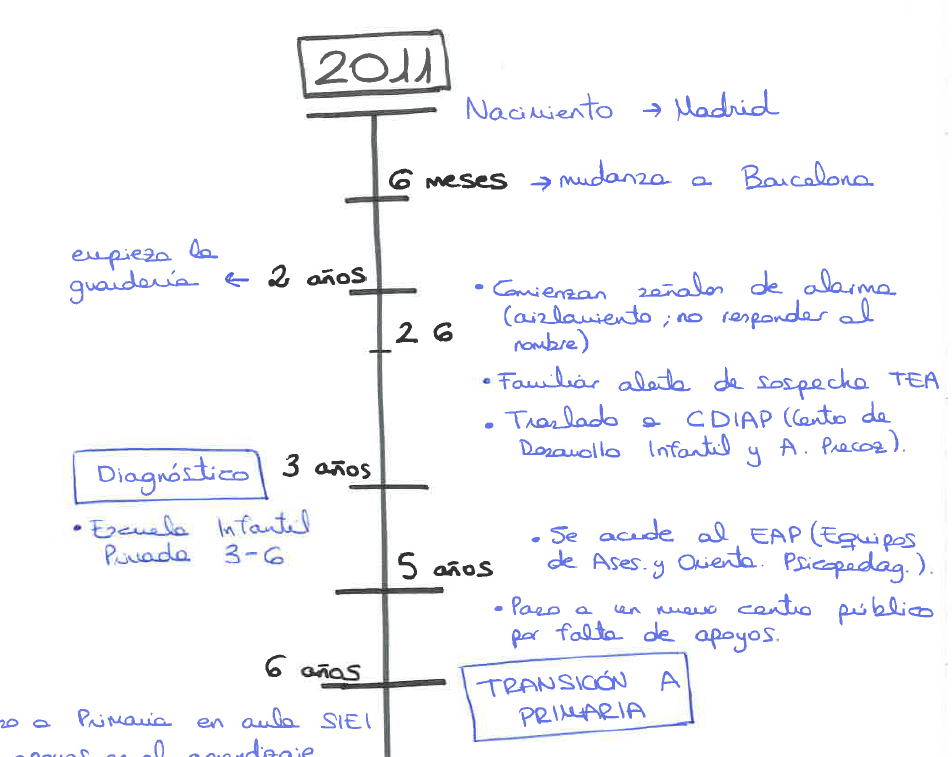 2011
Nacimiento → Madrid
6 meses → mudanza a Barcelona
empieza la
guardería ← 2 años
• Comienzan señales de alarma
(aislamiento; no responder al
nombre)
2 6
• Familiar alerta de sospecha TEA
• Traslado a CDIAP (Cento de
Desarrollo Infantil y A. Precoz).
Diagnóstico
3 años
• Escuela Infantil
Privada 3-6
• Se acude al EAP (Equipos
de Ases. y Orienta. Psicopedag.).
5 años
• Paso a un nuevo centro público
por falta de apoyos.
6 años
TRANSICIÓN A
PRIMARIA
a Primaria en aula SIEI
en el aprendizaje